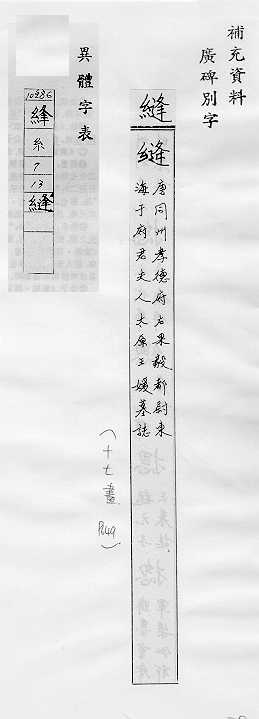 補充資料
廣碑別字
縫
縫
唐同州孝德府右果毅都尉東
海于府君夫人太原王媛墓誌
(十七畫 P.449)
異體字表
10286
縫
糸
7
13
縫